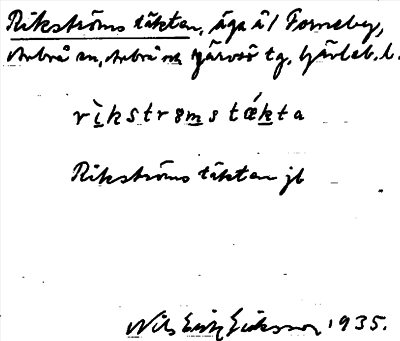 Rikströms täktan, äga å 1 Forneby,
Arbrå sn, Arbrå och Järvsö tg, Gävleb. l.
rìkstrømstǽkta
Rikströms täktan jb
Nils Erik Eriksson 1935.